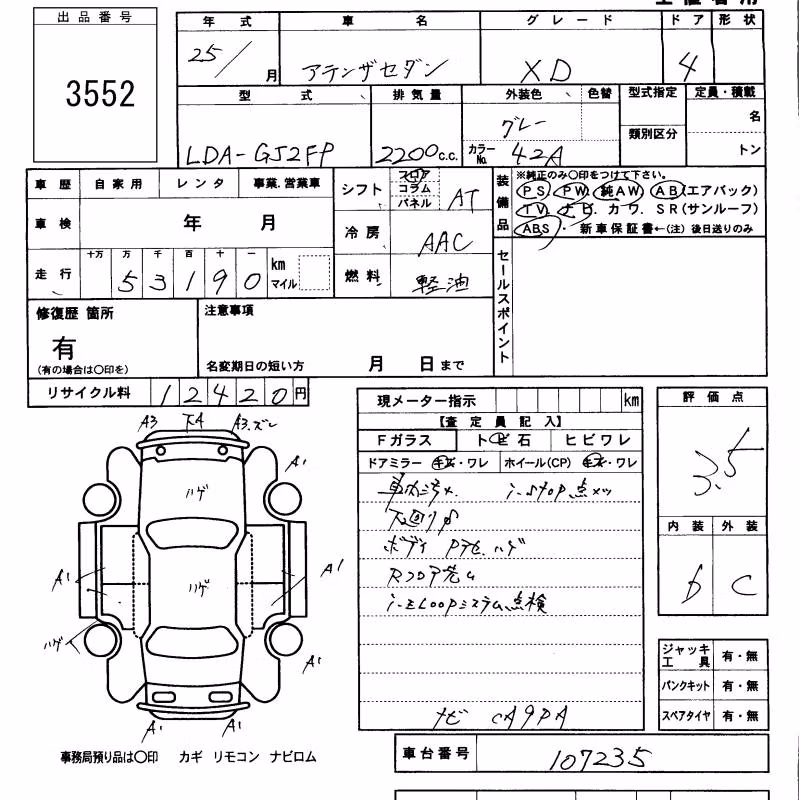 出品番号
3552
年式 車名 グレード ドア 形状
25/ 月 アテンザセダン XD 4
型式 排気量 外装色 色替 型式指定 定員・積載
LDA-GJ2FP 2200c.c. グレー 類別区分 名
カラーNo. 42A トン
車歴 自家用 レンタ 事業.営業車
車検 年 月
走行 十万 万 千 百 十 一
53190 km マイル
シフト フロア コラム パネル AT
冷房 AAC
燃料 軽油
装備品
※純正のみ〇印をつけて下さい。
PS. PW. 純AW. AB(エアバック)
TV. ナビ. カワ. SR(サンルーフ)
ABS. 新車保証書←(注) 後日送りのみ
セールスポイント
修復歴 箇所
有
(有の場合は〇印を)
注意事項
名変期日の短い方 月 日まで
リサイクル料 12420円
現メーター指示 km
【査定員記入】
Fガラス トビ石 ヒビワレ
ドアミラー キズ・ワレ ホイール(CP) キズ・ワレ
i-stop点メッ
下回りサ
ボディ Pテセ.ハゲ
i-ELoopシステム点検
ナビ CA9PA
評価点
3.5
内装 外装
b C
ジャッキ工具 有・無
パンクキット 有・無
スペアタイヤ 有・無
A3 下4 A3.ズレ
A1
ハゲ
A1 ハゲ A1
ハゲ A1
A1 A1
事務局預り品は〇印 カギ リモコン ナビロム
車台番号 107235